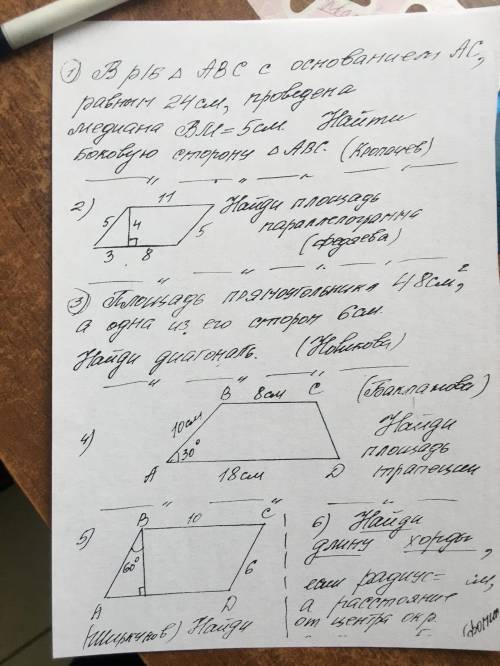 1) В р/б △ ABC с основанием AC,
равным 24 см, проведена
медиана BM = 5 см. Найти
боковую сторону △ ABC. (Кропачев)
2) 11 Найди площадь
5 4 5 параллелограмма
3 8 (Федяева)
3) Площадь прямоугольника 48 см²,
а одна из его сторон 6 см.
Найди диагональ. (Новикова)
B 8 см C (Бакланова)
4) 10 см 30° Найди
площадь
A 18 см D трапеции
5) B 10 C
60° 6
A D
(Ширкунов) Найди
6) Найди
длину хорды,
если радиус = см,
а расстояние
от центра окр.